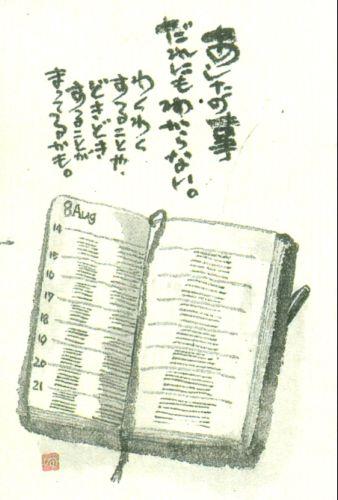 あしたの事
だれにもわからない。
わくわく
することや、
どきどき
することが
まってるかも。
8 Aug
14
15
16
17
18
19
20
21